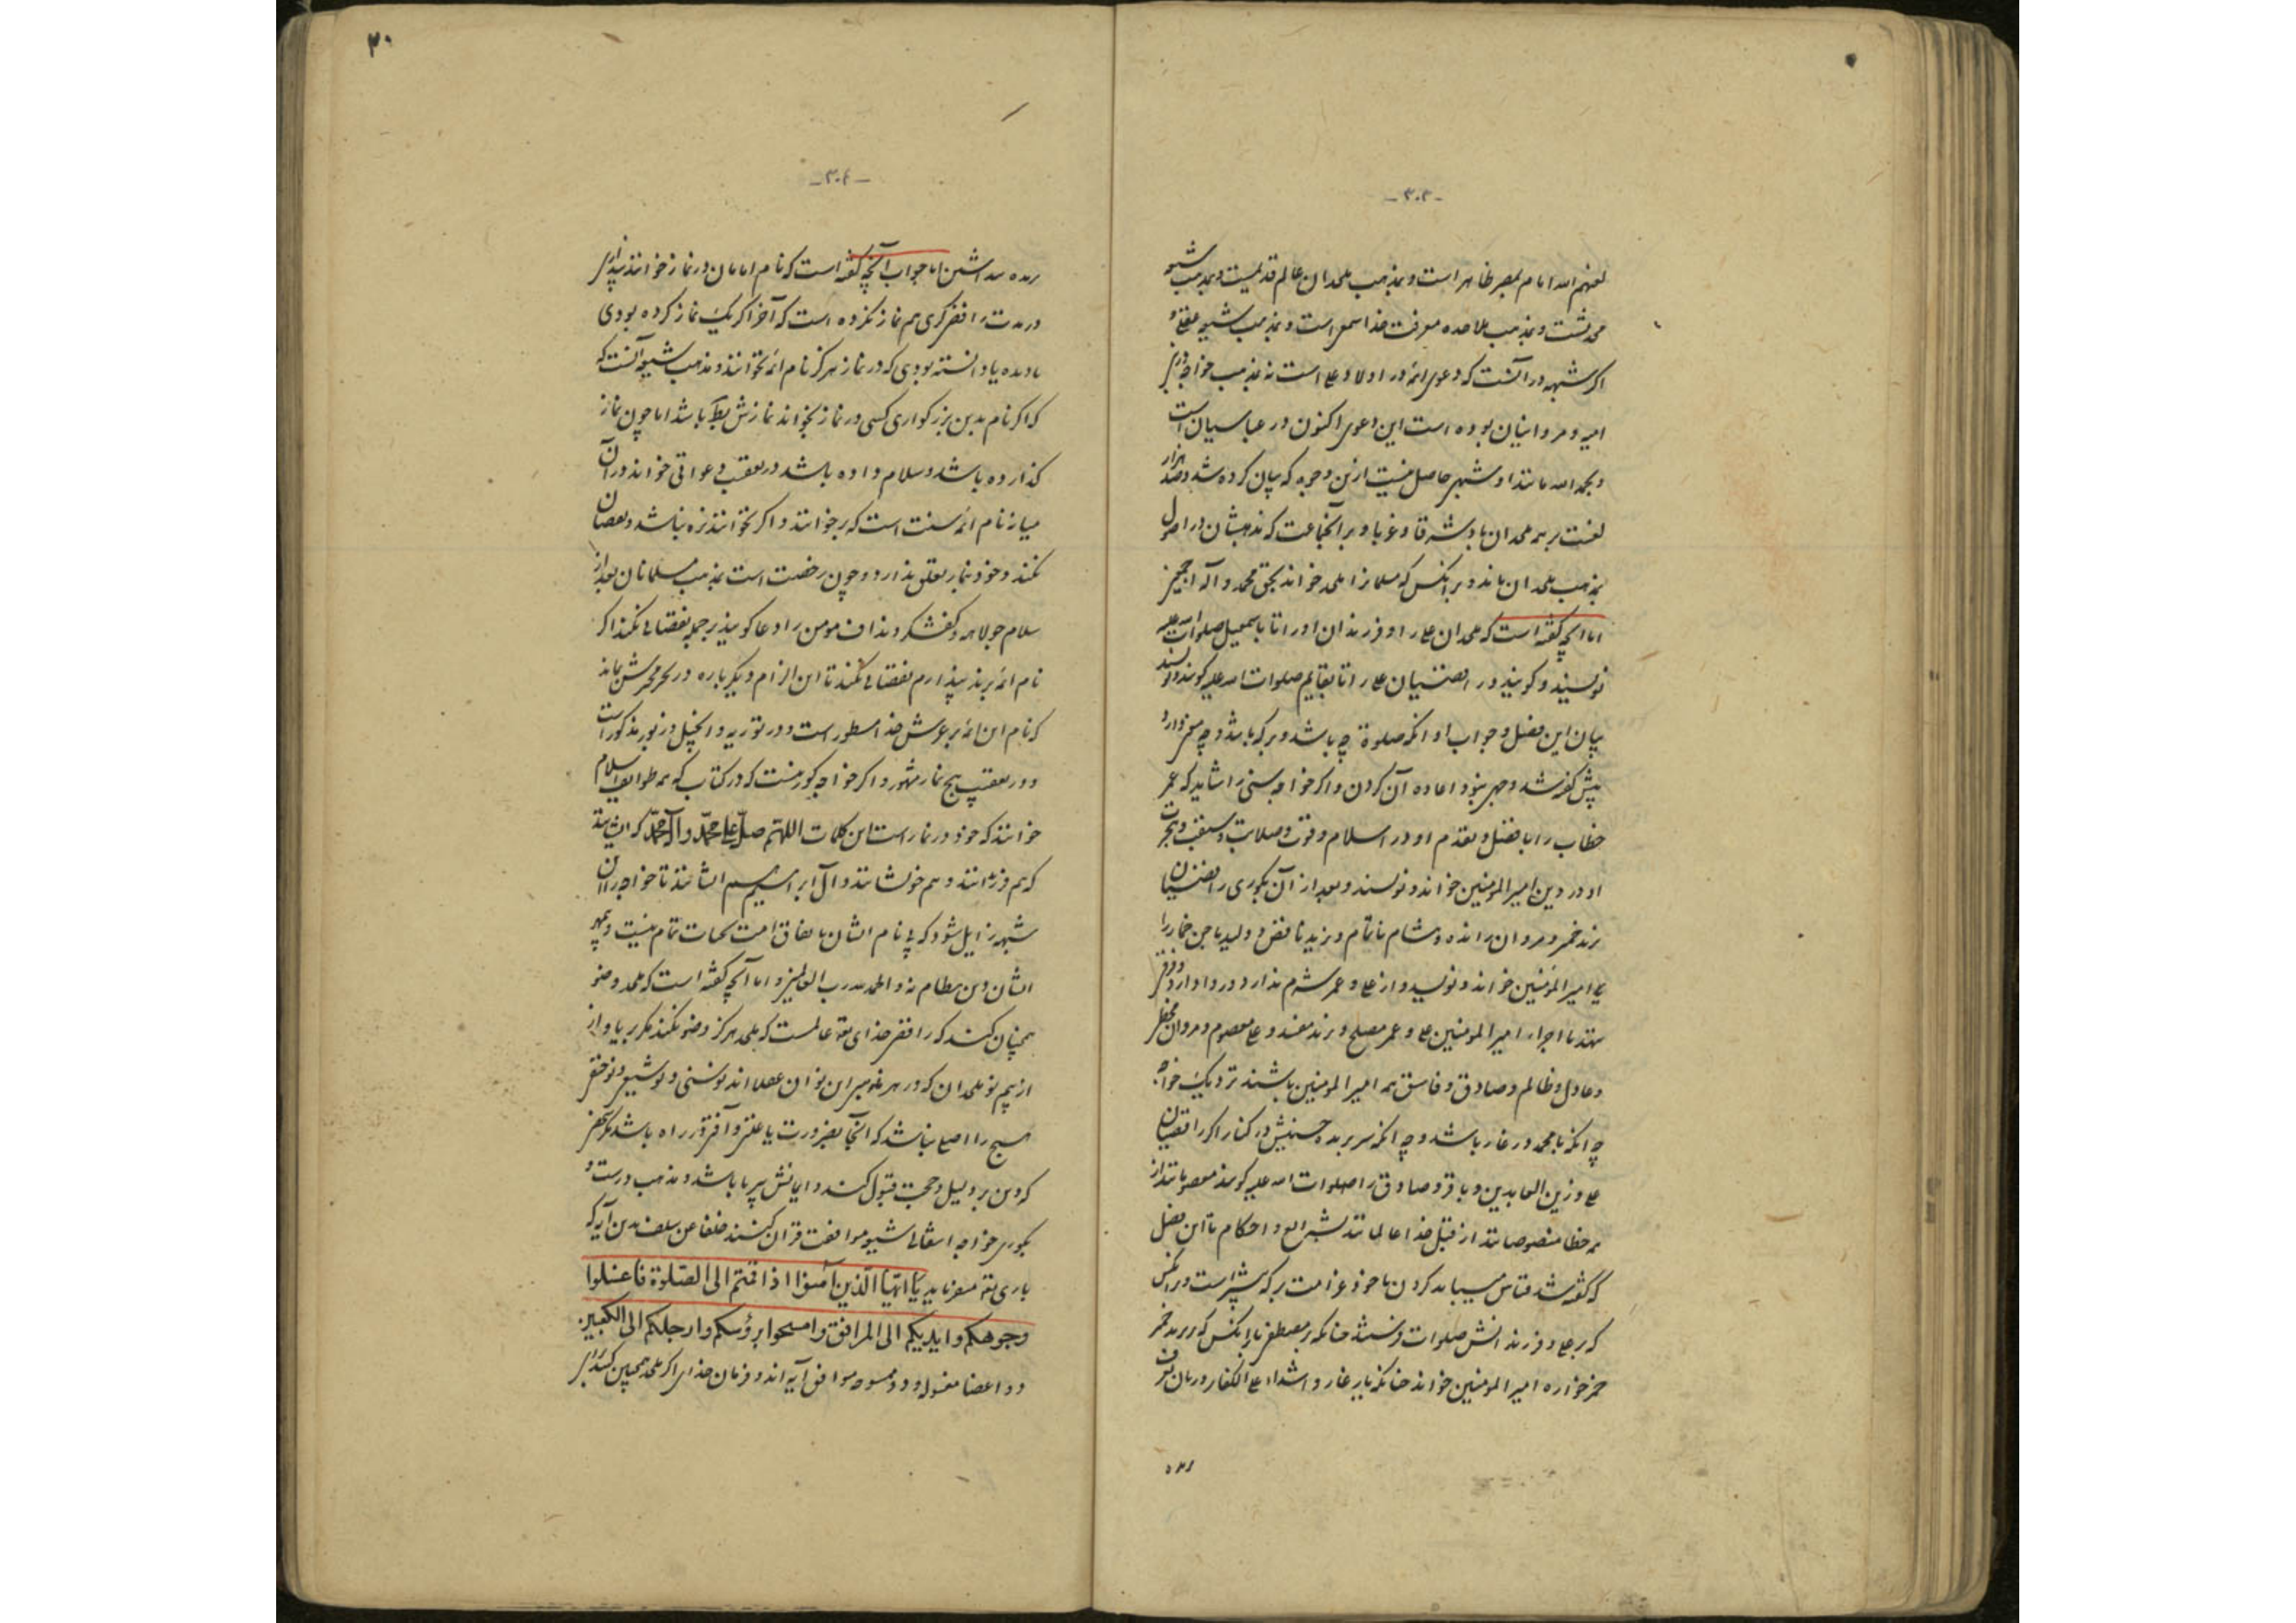 -٣٠٣-
لعنهم الله امام بمصر ظاهر است و بمذهب ملحدان عالم قدیمست و بمذهب شیعه
محدثست و بمذهب ملاحده معرفت خدا سمعی است و بمذهب شیعه عقلی و
اگر شبهه در آنست که دعوی ائمه در اولاد علی است نه بمذهب خواجه
امیه و مروانیان بوده است این دعوی اکنون در عباسیان است
و بحمد الله مانندا و شبهی حاصل نیست ازین وجوه که بیان کرده شد و صد هزار
لعنت بر همه ملحدان باد شرقا و غربا و بر آنجماعت که مذهبشان در اصول
بمذهب ملحدان ماند و بر آنکس که مسلمانرا ملحد خواند بحق محمد و آله اجمعین
اما آنچه گفته است که ملحدان علی را و فرزندان او را تا باسمعیل صلوات الله علیه
نویسند و گویند و رافضیان علی را تا بقایم صلوات الله علیه گویند و نویسند
بیان این فصل و جواب او آنکه صلوة چه باشد و بر که باشد و چه معنی دارد
پیش گفته شد و جهی نبود اعاده آن کردن و اگر خواجه سنی را شاید که عمر
خطاب را با فضل و تقدم او در اسلام و قوت و صلابت و سبقت و هجرت
او در دین امیر المومنین خواند و نویسند و بعد از آن بکوری رافضیان
یزید خمر و مروان رانده و هشام ناتمام و یزید ناقص و ولید
امیر المؤمنین خواند و نویسد و از علی و عمر شرم ندارد و روا دارد
امیر المومنین علی و عمر مصلح و یزید مفسد و علی معصوم و مروان
و عادل و ظالم و صادق و فاسق همه امیر المومنین باشند نزدیک خواجه
چه آنکه با محمد در غار باشد و چه آنکه سر بریده حسینش در کنار اگر رافضیان
علی و زین العابدین و باقر و صادق را صلوات الله علیه گویند معصومانند از
همه خطا منصوصانند از قبل خدا عالمانند بشرایع و احکام تا این فصل
که گفته شد قیاس میباید کردن با خود غرامت بر که بیشتر است بر آنکس
که بر علی و فرزندانش صلوات فرستد چنانکه بر مصطفی یا بر آنکس که یزید خمر
خمرخواره امیر المومنین خواند چنانکه یار غار و اشداء علی الکفار
-٣٠٤-
اما جواب آنچه گفته است که نام امامان در نماز خوانند پنداری
در مدت رافضیگری هم نماز نکرده است که آخر اگر یک نماز کرده بودی
یا دیده یا دانسته بودی که در نماز هرگز نام ائمه نخوانند و مذهب شیعه آنست که
که اگر نام بدین بزرگواری کسی در نماز بخواند نمازش باطل باشد اما چون نماز
گذارده باشد و سلام داده باشد در تعقیب دعواتی خواند در آن
میانه نام ائمه سنت است که برخوانند و اگر نخوانند بزه نباشد و نقصان
نکند و خود بنماز تعلق ندارد و چون رخصت است بمذهب مسلمانان بعد از
سلام جولاهه و کفشگر و نداف مومن را دعا گویند بر جمله نقصانی نکند اگر
نام ائمه برند پندارم نقصانی نکند تا این الزام دیگر باره
که نام این ائمه بر عرش خدا مسطور است و در توریه و انجیل و زبور مذکور است
و در تعقیب پنج نماز مشهور و اگر خواجه کور نیست که در کتاب که همه طوایف اسلام
خوانند که خود در نماز است این کلمات اللهم صل علی محمد و آل محمد که ایشانند
که هم فرزندانند و هم خویشانند و آل ابراهیم ایشانند تا خواجه را آن
شبهه زایل شود که بی نام ایشان باتفاق امت تحیات تمام نیست و بی مهر
ایشان دین بنظام نه و الحمد لله رب العالمین و اما آنچه گفته است که ملحد وضو
همچنان کند که رافضی خدای تعالی عالمست که ملحد هرگز وضو نکند مگر بریا و از
از بیم نو ملحدان
هیچ را اصلی نباشد که آنجا بضرورت یا علتی و آفتی را راه باشد مگر
که دین بر دلیل و حجت قبول کند و ایمانش بی ریا باشد و مذهب درست
بکوری خواجه انتقالی شیعه موافقت قرآن کنند خلفا عن سلف بدین آیه که
باری تعالی میفرماید یا ایها الذین آمنوا اذا قمتم الی الصلوة فاغسلوا
وجوهکم و ایدیکم الی المرافق و امسحوا برؤسکم و ارجلکم الی الکعبین
دو اعضا مغسول و دو ممسوح موافق آیه اند و فرمان خدای اگر ملحد همچنین کند